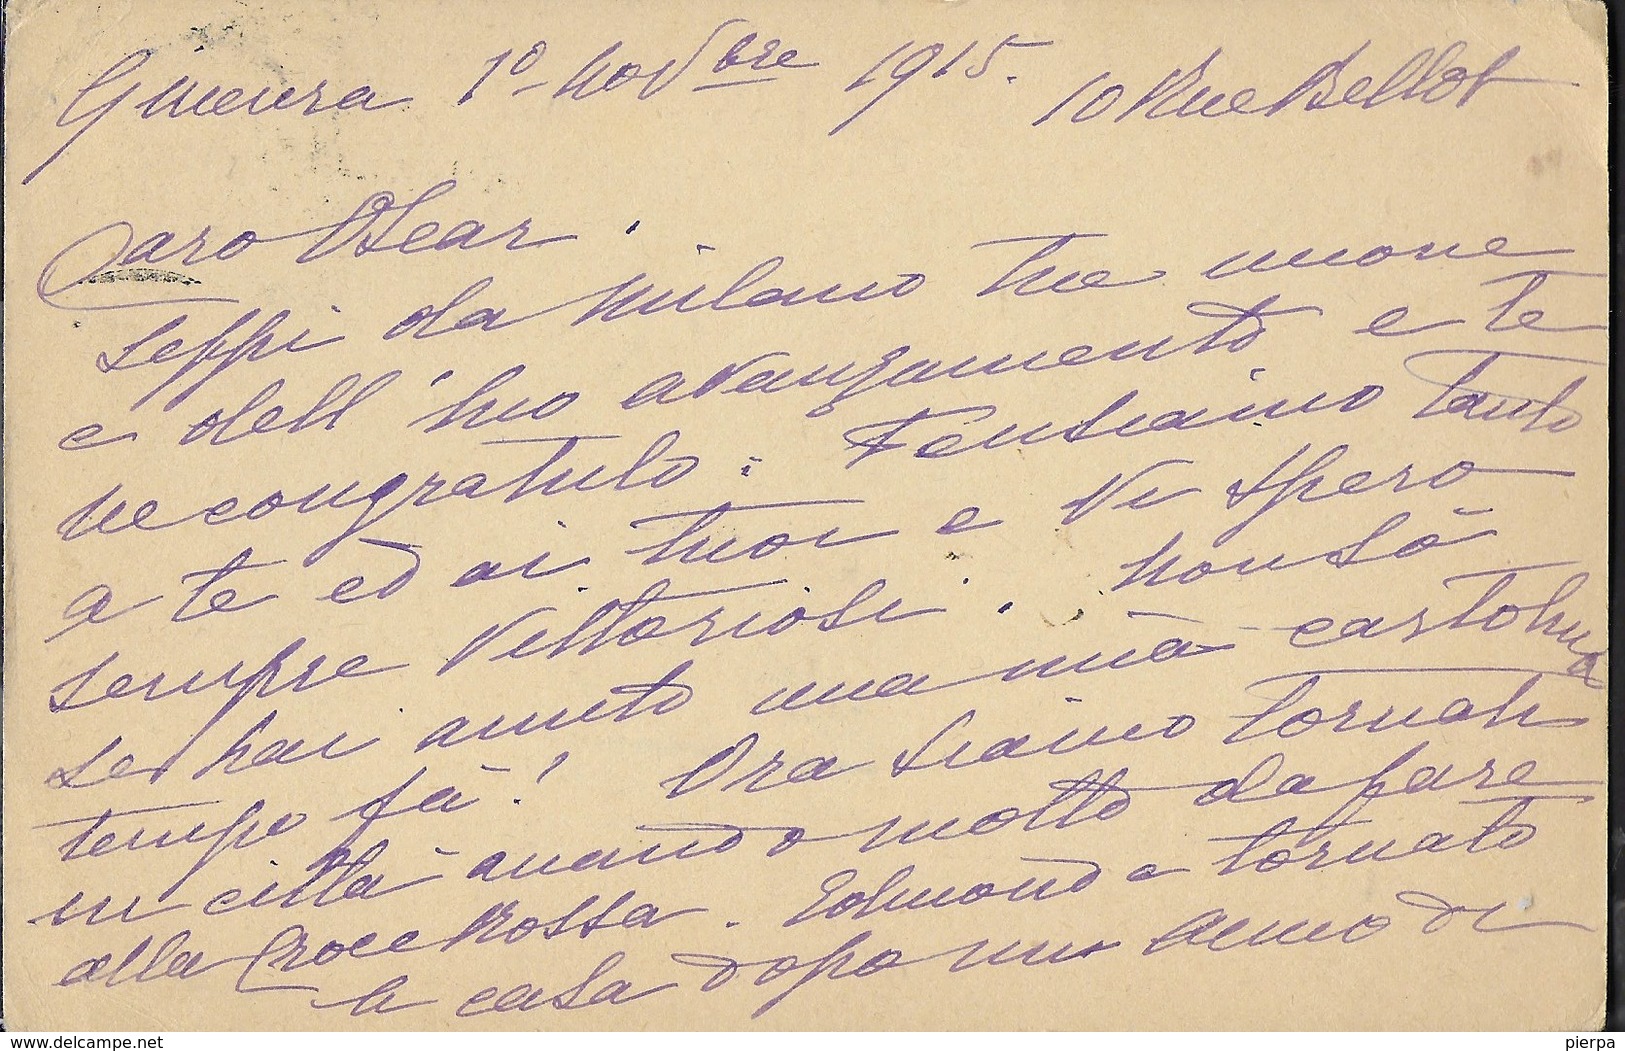 Ginevra 1º Novbre 1915. 10 Rue Bellot
Caro Oscar.
Seppi da Milano tue nuove
e dell' tuo avanzamento e te
ne congratulo. Pensiamo tanto
a te ed ai tuoi e vi spero
sempre vittoriosi. Non sò
se hai avuto una mia cartolina
tempo fà! Ora siamo tornati
in città avendo molto da fare
alla Croce Rossa. Edmondo è tornato
a casa dopo un anno di
www.delcampe.net
pierpa